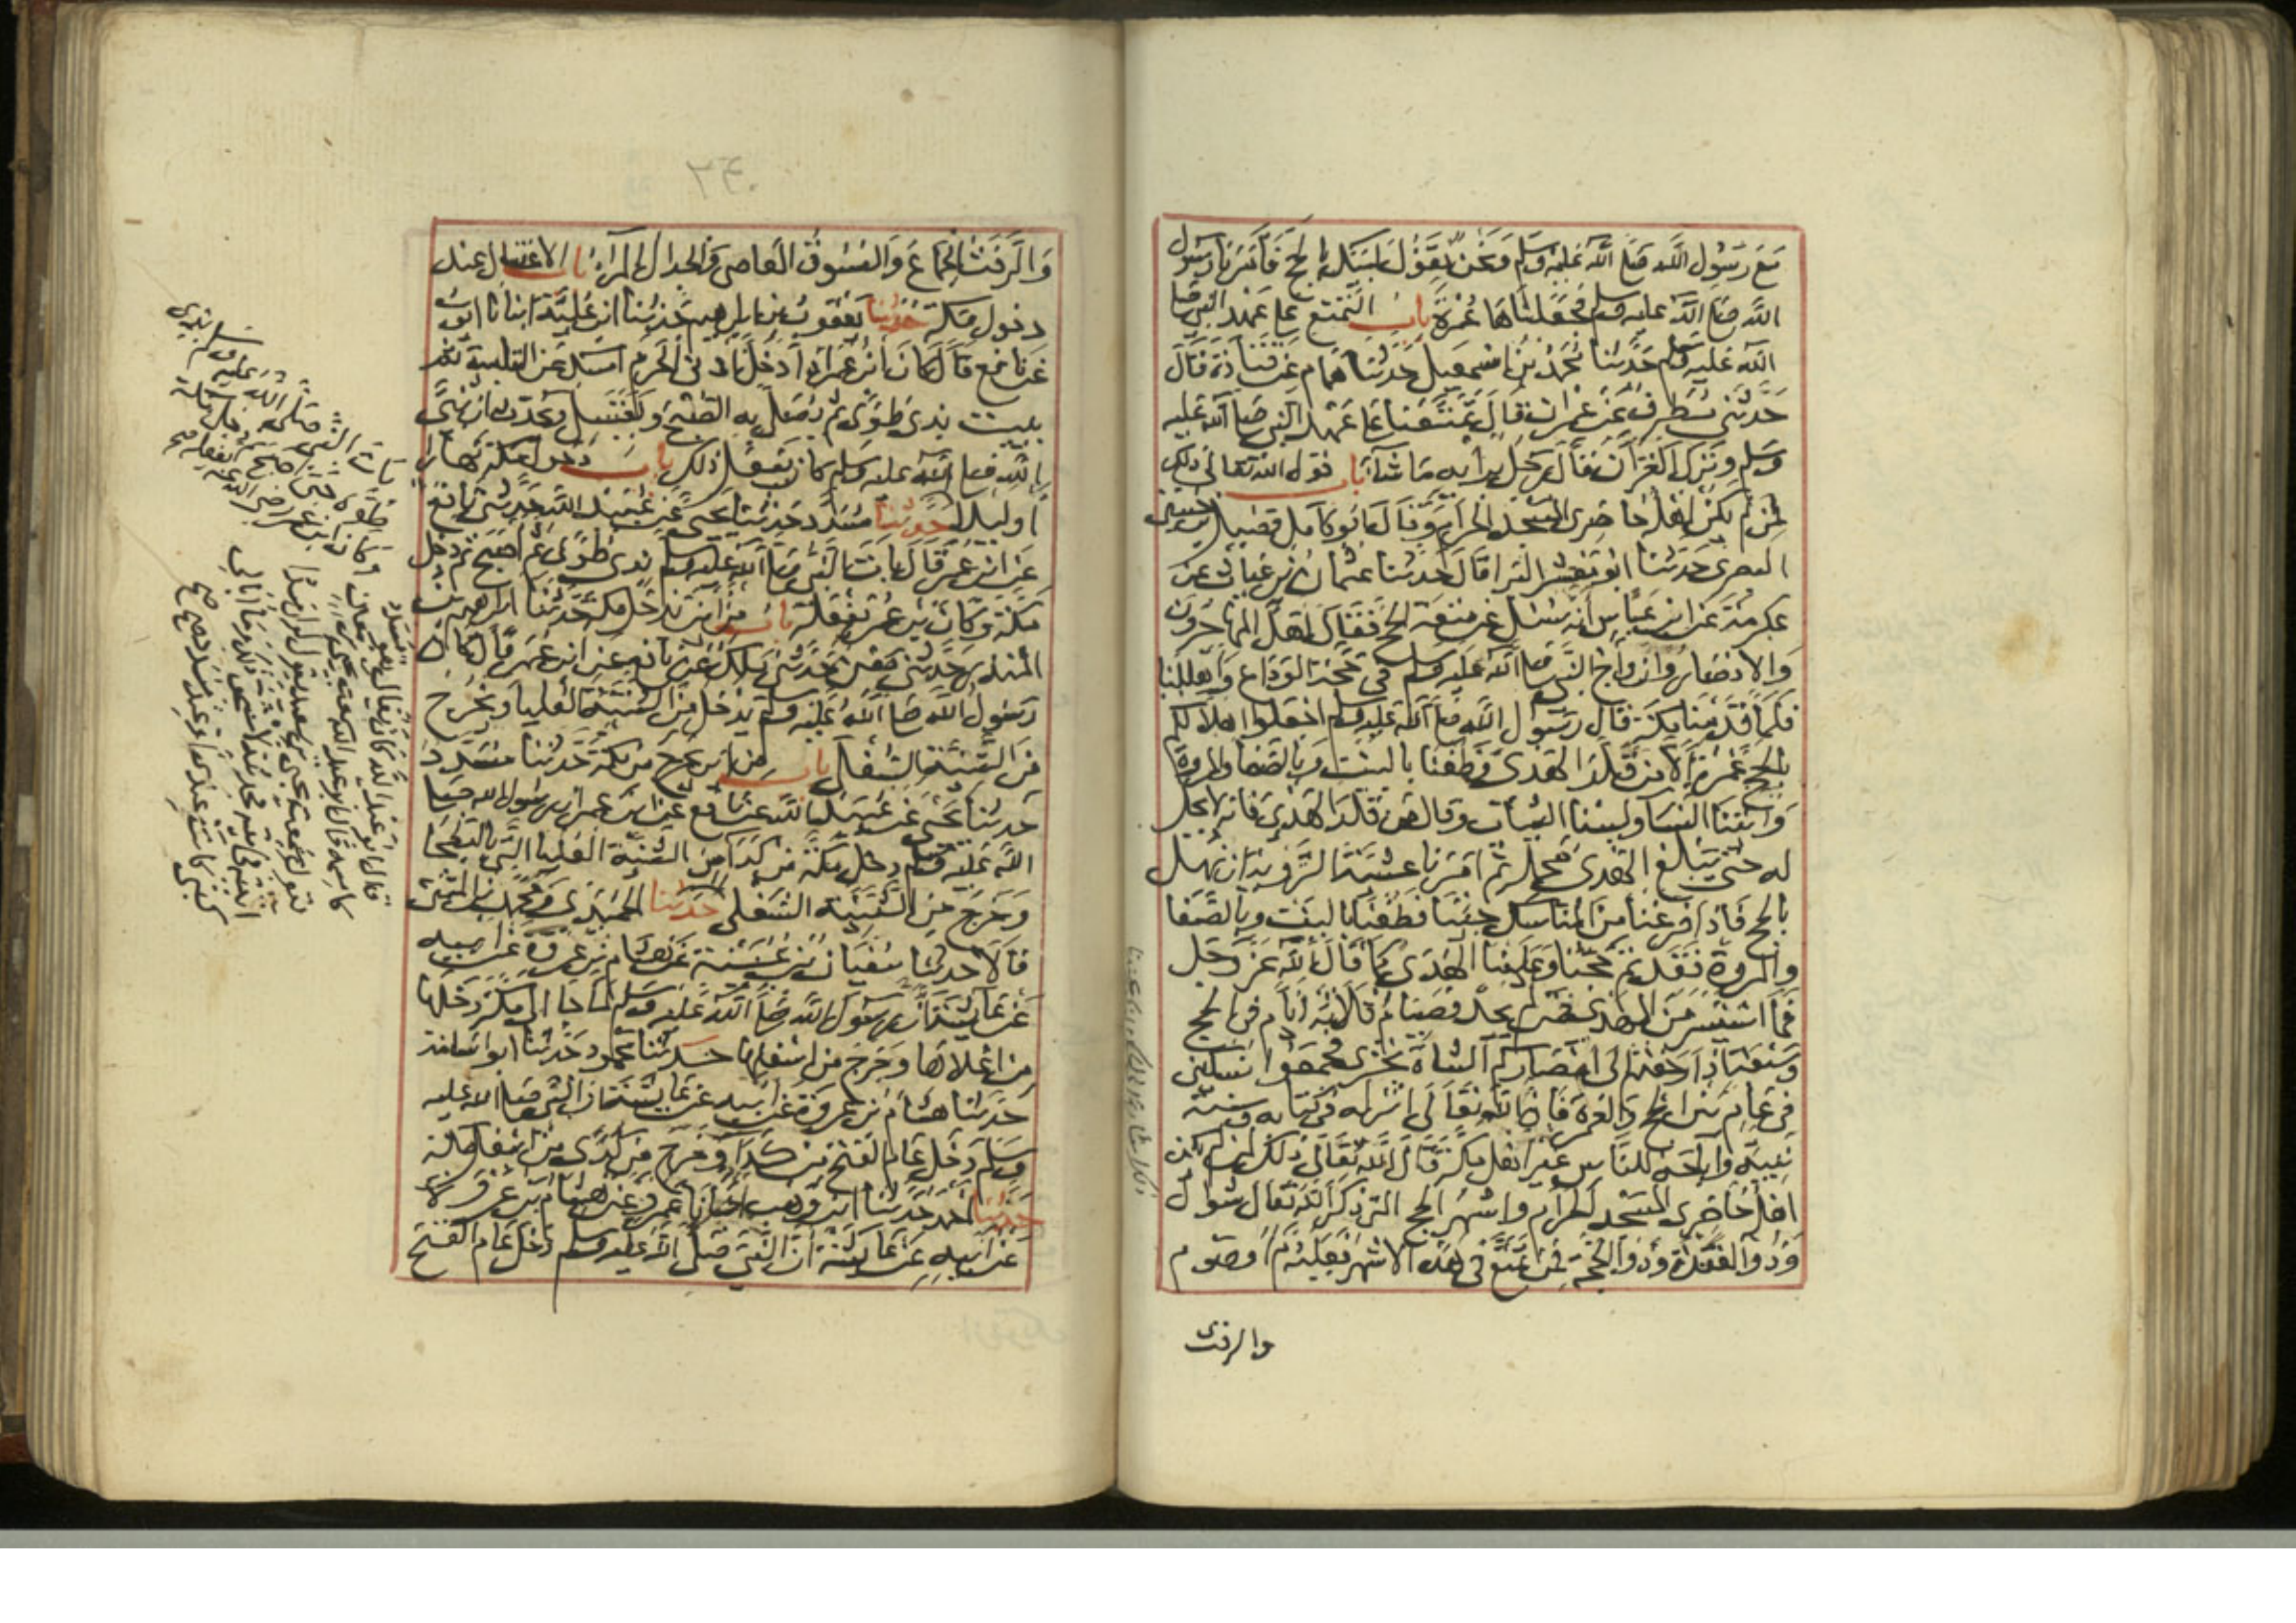 مع رسول الله صلى الله عليه وسلم ونحن نقول لبيك بالحج فأمرنا رسول
الله صلى الله عليه وسلم فجعلناها عمرة باب التمتع على عهد النبي صلى
الله عليه وسلم حدثنا محمد بن اسمعيل حدثنا همام عن قتادة قال
حدثني مطرف عن عمران قال تمتعنا على عهد النبي صلى الله عليه
وسلم ونزل القرآن فقال رجل برأيه ما شاء باب قول الله تعالى ذلك
لمن لم يكن اهله حاضري المسجد الحرام وقال ابو كامل فضيل بن حسين
البصري حدثنا ابو معشر البرا قال حدثنا عثمان بن غياث عن
عكرمة عن ابن عباس انه سئل عن متعة الحج فقال اهل المهاجرون
والانصار وازواج النبي صلى الله عليه وسلم في حجة الوداع واهللنا
فلما قدمنا مكة قال رسول الله صلى الله عليه وسلم اجعلوا اهلالكم
بالحج عمرة الا من قلد الهدي فطفنا بالبيت وبالصفا والمروة
واتينا النساء ولبسنا الثياب وقال من قلد الهدي فانه لا يحل
له حتى يبلغ الهدي محله ثم امرنا عشية التروية ان نهل
بالحج فاذا فرغنا من المناسك جئنا فطفنا بالبيت وبالصفا
والمروة فقد تم حجنا وعلينا الهدي كما قال الله عز وجل
فما استيسر من الهدي فمن لم يجد فصيام ثلاثة ايام في الحج
وسبعة اذا رجعتم الى امصاركم الشاة تجزي فجمعوا نسكين
في عام بين الحج والعمرة فان الله تعالى انزله في كتابه وسنة
نبيه واباحه للناس غير اهل مكة قال الله تعالى ذلك لمن لم يكن
اهله حاضري المسجد الحرام واشهر الحج التي ذكر الله تعالى شوال
وذو القعدة وذو الحجة فمن تمتع في هذه الاشهر فعليه دم او صوم
والرفث
والرفث الجماع والفسوق المعاصي والجدال المراء باب الاغتسال عند
دخول مكة حدثنا يعقوب بن ابراهيم حدثنا ابن علية انبانا ايوب
عن نافع قال كان ابن عمر اذا دخل ادنى الحرم امسك عن التلبية ثم
يبيت بذي طوى ثم يصلي به الصبح ويغتسل ويحدث ان نبي
الله صلى الله عليه وسلم كان يفعل ذلك باب دخول مكة نهارا
او ليلا حدثنا مسدد حدثنا يحيى عن عبيد الله حدثني نافع
عن ابن عمر قال بات النبي صلى الله عليه وسلم بذي طوى ثم اصبح ثم دخل
مكة وكان ابن عمر يفعله باب من اين يدخل مكة حدثنا ابراهيم بن
المنذر حدثني معن حدثني مالك عن نافع عن ابن عمر قال كان
رسول الله صلى الله عليه وسلم يدخل من الثنية العليا ويخرج
من الثنية السفلى باب من اين يخرج من مكة حدثنا مسدد
حدثنا يحيى عن عبيد الله عن نافع عن ابن عمر ان رسول الله صلى
الله عليه وسلم دخل مكة من كداء من الثنية العليا التي بالبطحا
وخرج من الثنية السفلى حدثنا الحميدي ومحمد بن المثنى
قالا حدثنا سفيان بن عيينة عن هشام بن عروة عن ابيه
عن عائشة ان رسول الله صلى الله عليه وسلم لما جا الى مكة دخلها
من اعلاها وخرج من اسفلها حدثنا محمود حدثنا ابو اسامة
حدثنا هشام بن عروة عن ابيه عن عائشة ان النبي صلى الله عليه
وسلم دخل عام الفتح من كداء وخرج من كدى من اعلى مكة
حدثنا احمد حدثنا ابن وهب اخبرنا عمرو عن هشام بن عروة
عن ابيه عن عائشة ان النبي صلى الله عليه وسلم دخل عام الفتح
بات النبي صلى الله عليه وسلم بذي
طوى حتى اصبح ثم دخل مكة
وكان ابن عمر رضي الله عنه يفعله صح
قال ابو عبد الله كان يقال هو مسدد
كاسمه قال ابو عبد الله سمعت يحيى بن معين
يقول سمعت يحيى بن سعيد يقول لو ان مسددا
اتيته في بيته فحدثته لاستحق ذلك وما ابالي
كتبي كانت عندي او عند مسدد صح